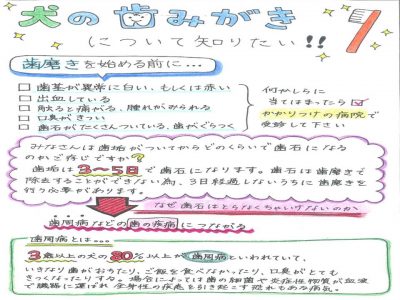 犬の歯みがき
について知りたい!!
歯磨きを始める前に…
□ 歯茎が異常に白い、もしくは赤い
□ 出血している
□ 触ると痛がる、腫れがみられる
□ 口臭がきつい
□ 歯石がたくさんついている、歯がぐらつく
何かしらに
当てはまったら☑
かかりつけの病院で
受診して下さい
みなさんは歯垢がついてからどのくらいで歯石になる
のかご存じですか?
歯垢は3〜5日で歯石になります。歯石は歯磨きで
除去することができない為、3日経過しないうちに歯磨きを
行う必要があります。
なぜ歯石はとらなくちゃいけないのか
歯周病などの歯の疾病につながる
歯周病とは…
3歳以上の犬の80%以上が歯周病といわれていて、
いきなり歯がおれたり、ご飯を食べなかったり、口臭がとても
きつくなったりする。場合によっては歯の細菌や炎症性物質が血液
で臓器に運ばれ全身性の疾患を引き起こす恐れもある病気。